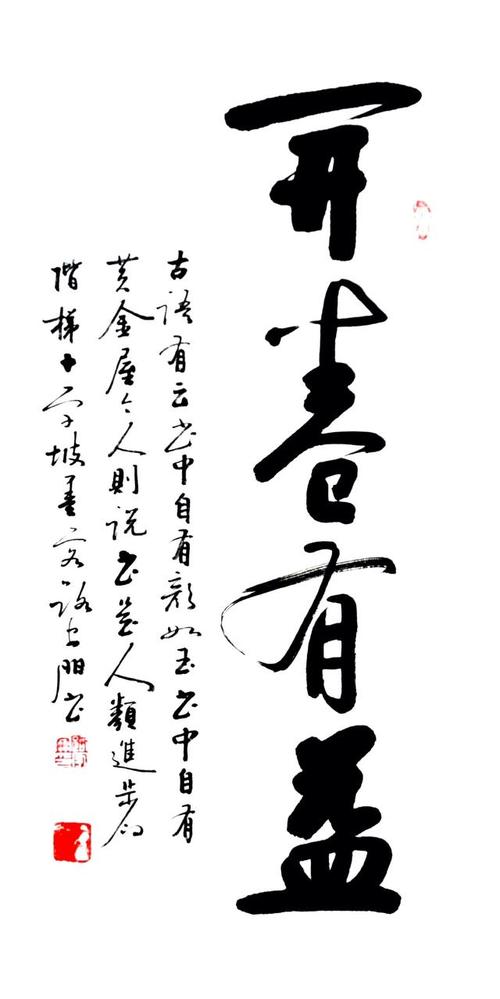 开卷有益
古语有云书中自有颜如玉书中自有
黄金屋今人則说书是人類進步的
階梯十字坡墨客路 阳书